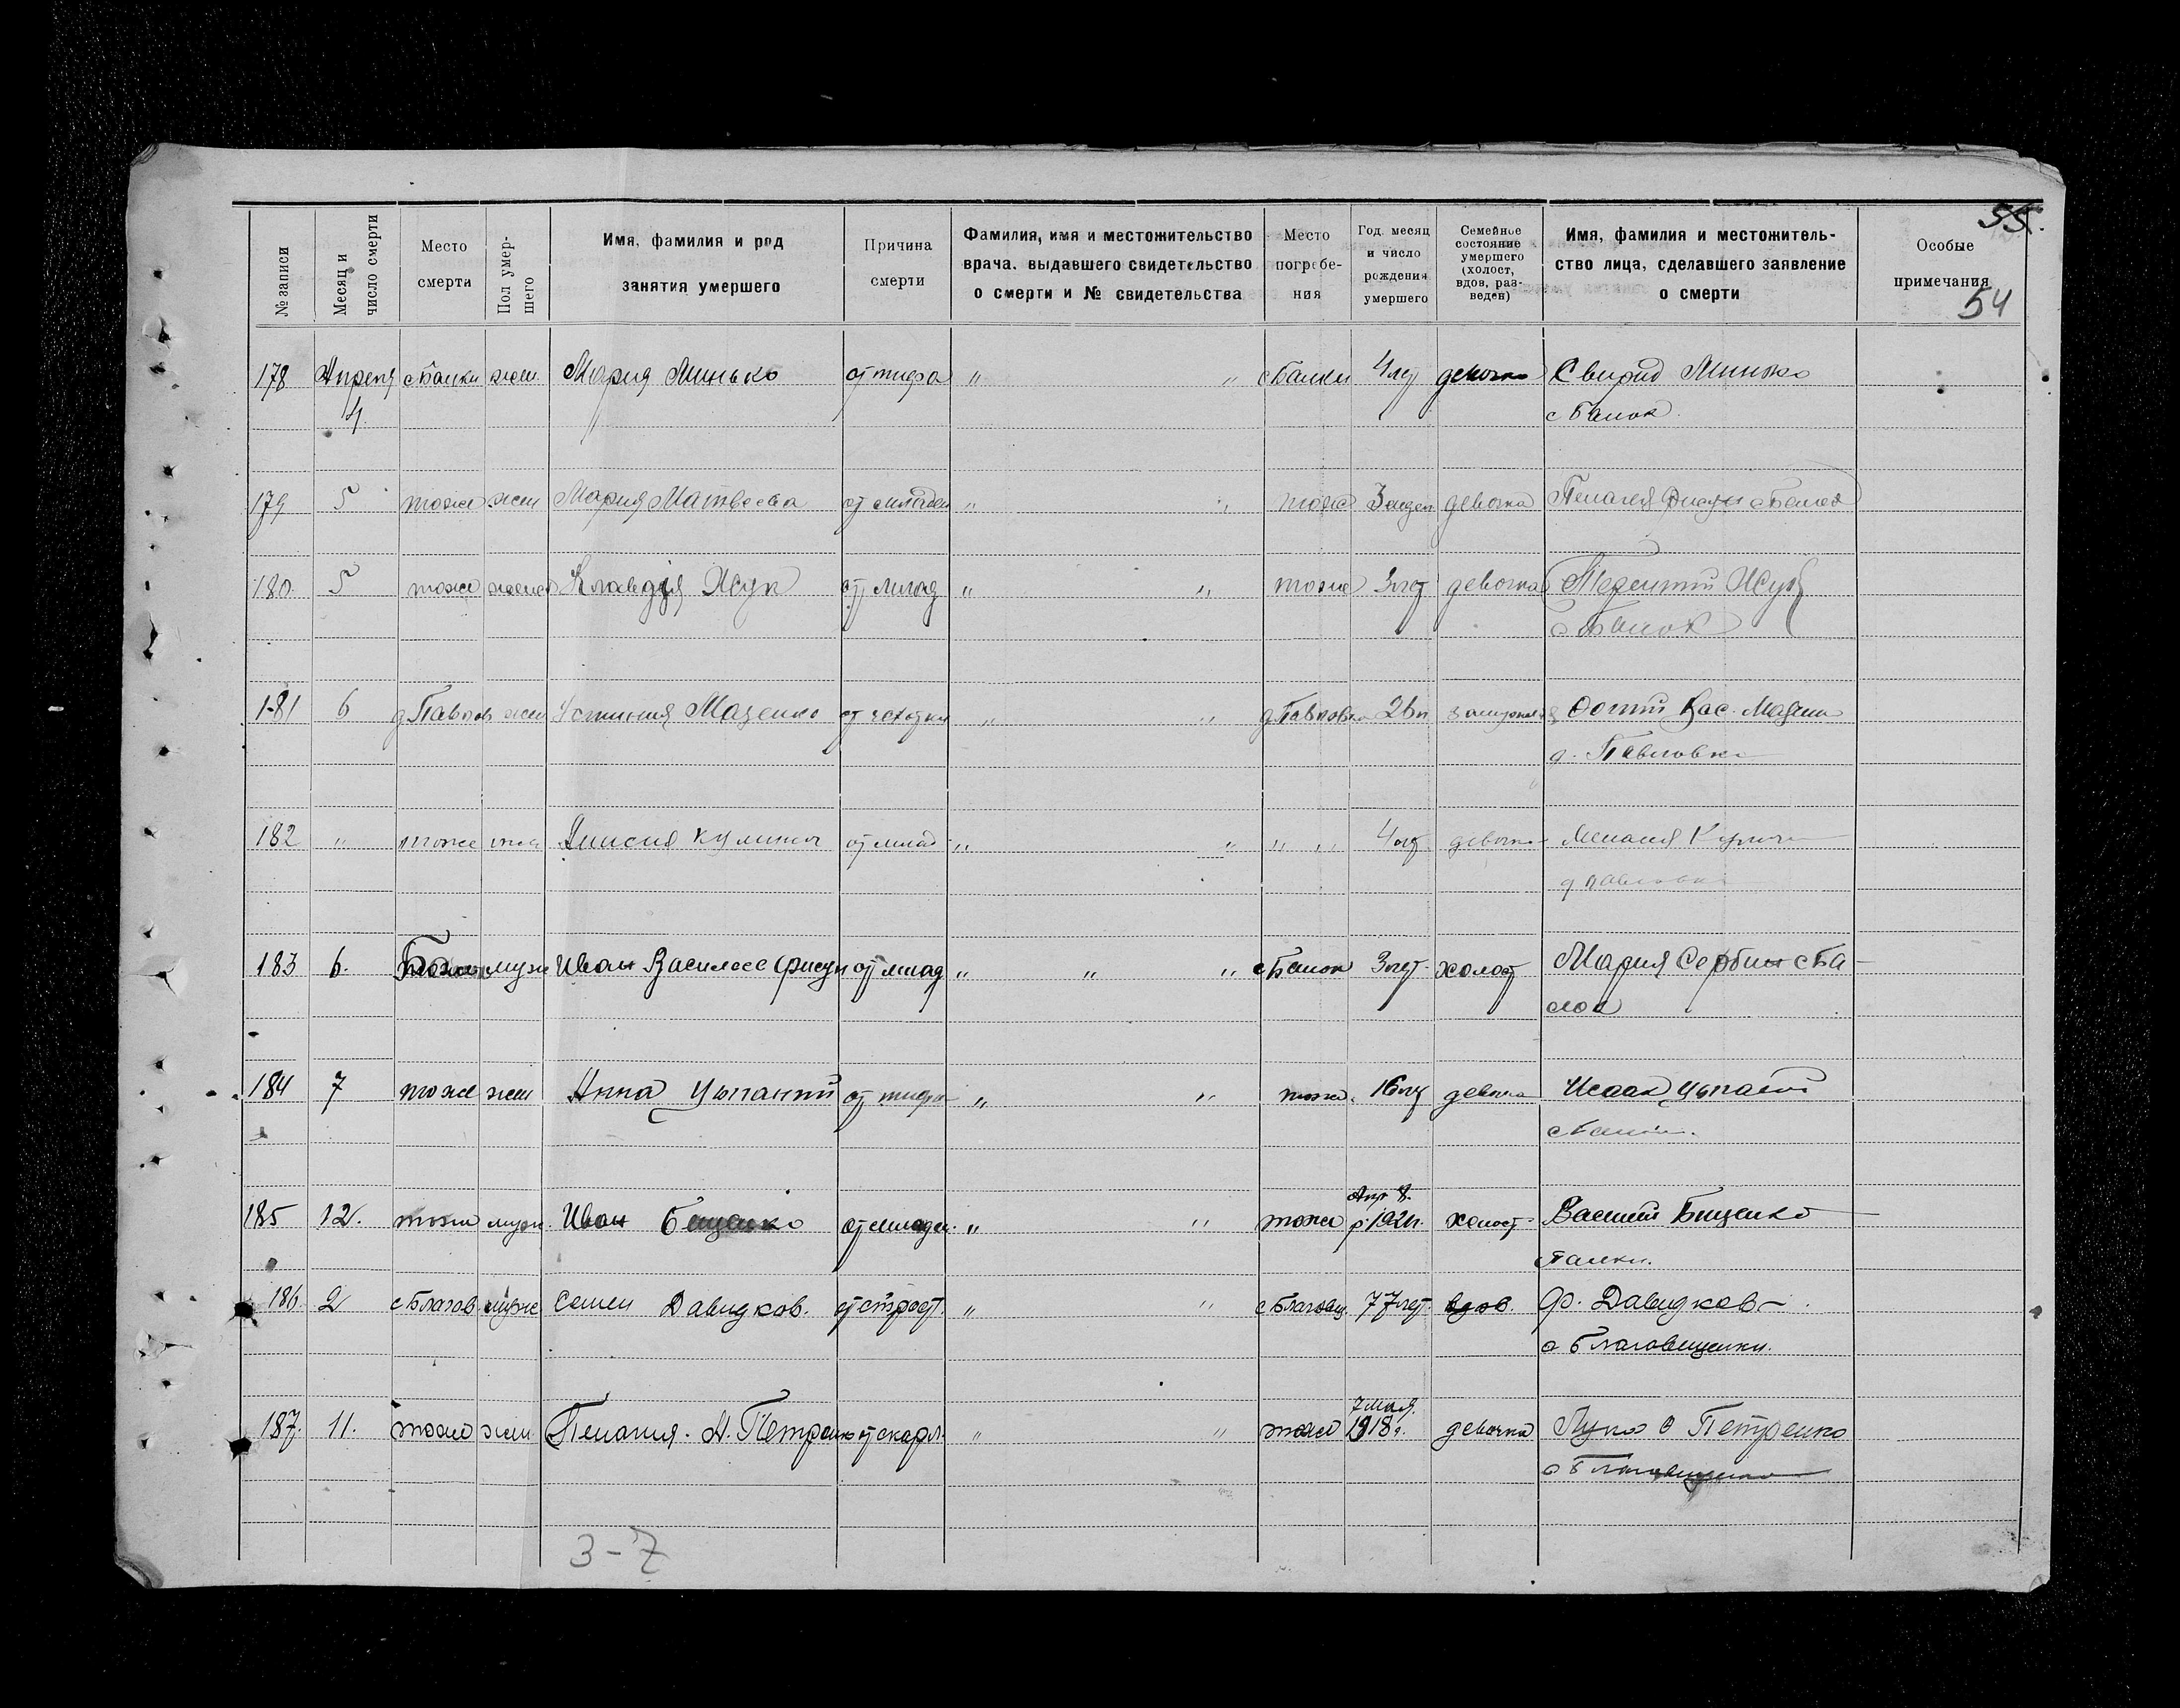 55.
№ записи
Месяц и число смерти
Место смерти
Пол умер-шего
Имя, фамилия и род занятия умершего
Причина смерти
Фамилия, имя и местожительство врача, выдавшего свидетельство о смерти и № свидетельства
Место погребе-ния
Год, месяц и число рождения умершего
Семейное состояние умершего (холост, вдов, раз-веден)
Имя, фамилия и местожитель-ство лица, сделавшего заявление о смерти
Особые примечания
54
178 Апреля с Балки жен. Мария Минько от тифа " " с Балки 4 лет девочка Свирид Минько
4. с Балок
179 5 тоже жен Мария Матвеева от младен " " тоже девочка Пелагея Фисун с Балок
180 5 тоже Клавдия Жук от млад " " тоже 3 лет девочка Терентий Жук
с Балок
181 6 д Павлов жен Устиния Мазенко от чахотки " " д Павловка 26 л замужняя Вас. Мазенко
д. Павловка
182 " тоже жен от млад " " " " 4 лет девочка
д Павловка
183 6. муж Иван Фисун от млад " " " с Балок 3 лет холост Мария Сербин с Ба-
лок
184 7 тоже жен Анна Цыпаний от тифа " " тоже 16 лет девочка Исаак
с Балки.
Апр 8.
185 12. тоже муж. Иван Бещенко от младен. " " тоже р. 192 г. холост Василий Бищенко
с Балки.
186. 2 с Благов муж Семен Давидков. от старост. " " с Благовещ. 77 лет. вдов. Ф. Давидков
с Благовещенки.
7 мая.
187. 11. тоже жен. Пелагия. Л. Петренко от скарл. " " тоже 1918 г. девочка Лука О Петренко
с Благовещенка
3-7